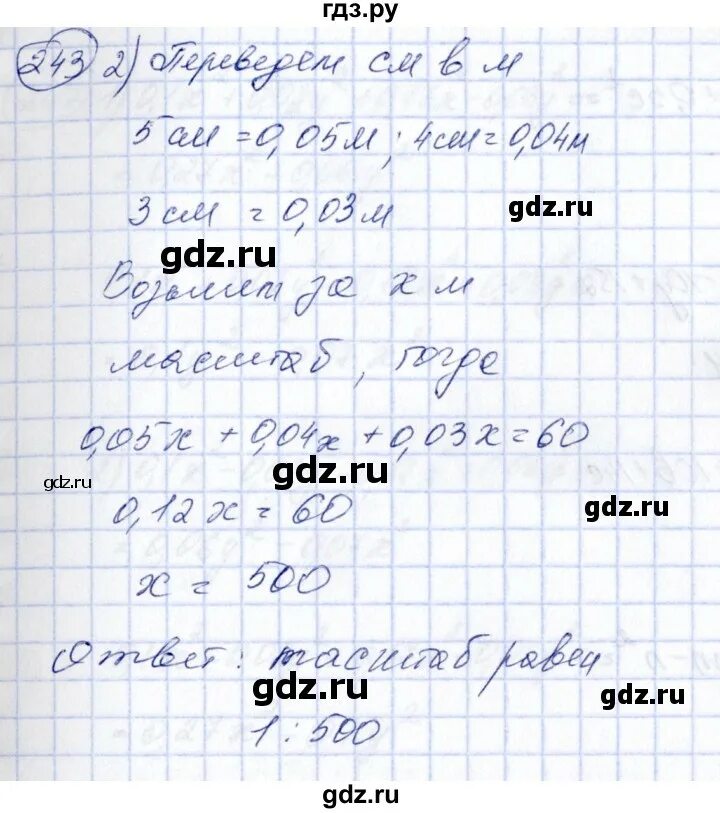 гдз.ру
243 2) Переведем см в м
5 см = 0,05м; 4см = 0,04м
3 см = 0,03 м
gdz.ru
gdz.ru
Возьмем за х м
масштаб, тогда
0,05х + 0,04х + 0,03х = 60
gdz.ru
gdz.ru
0,12х = 60
gdz.ru
х = 500
Ответ: масштаб равен
gdz.ru
gdz.ru
1 : 500
gdz.ru